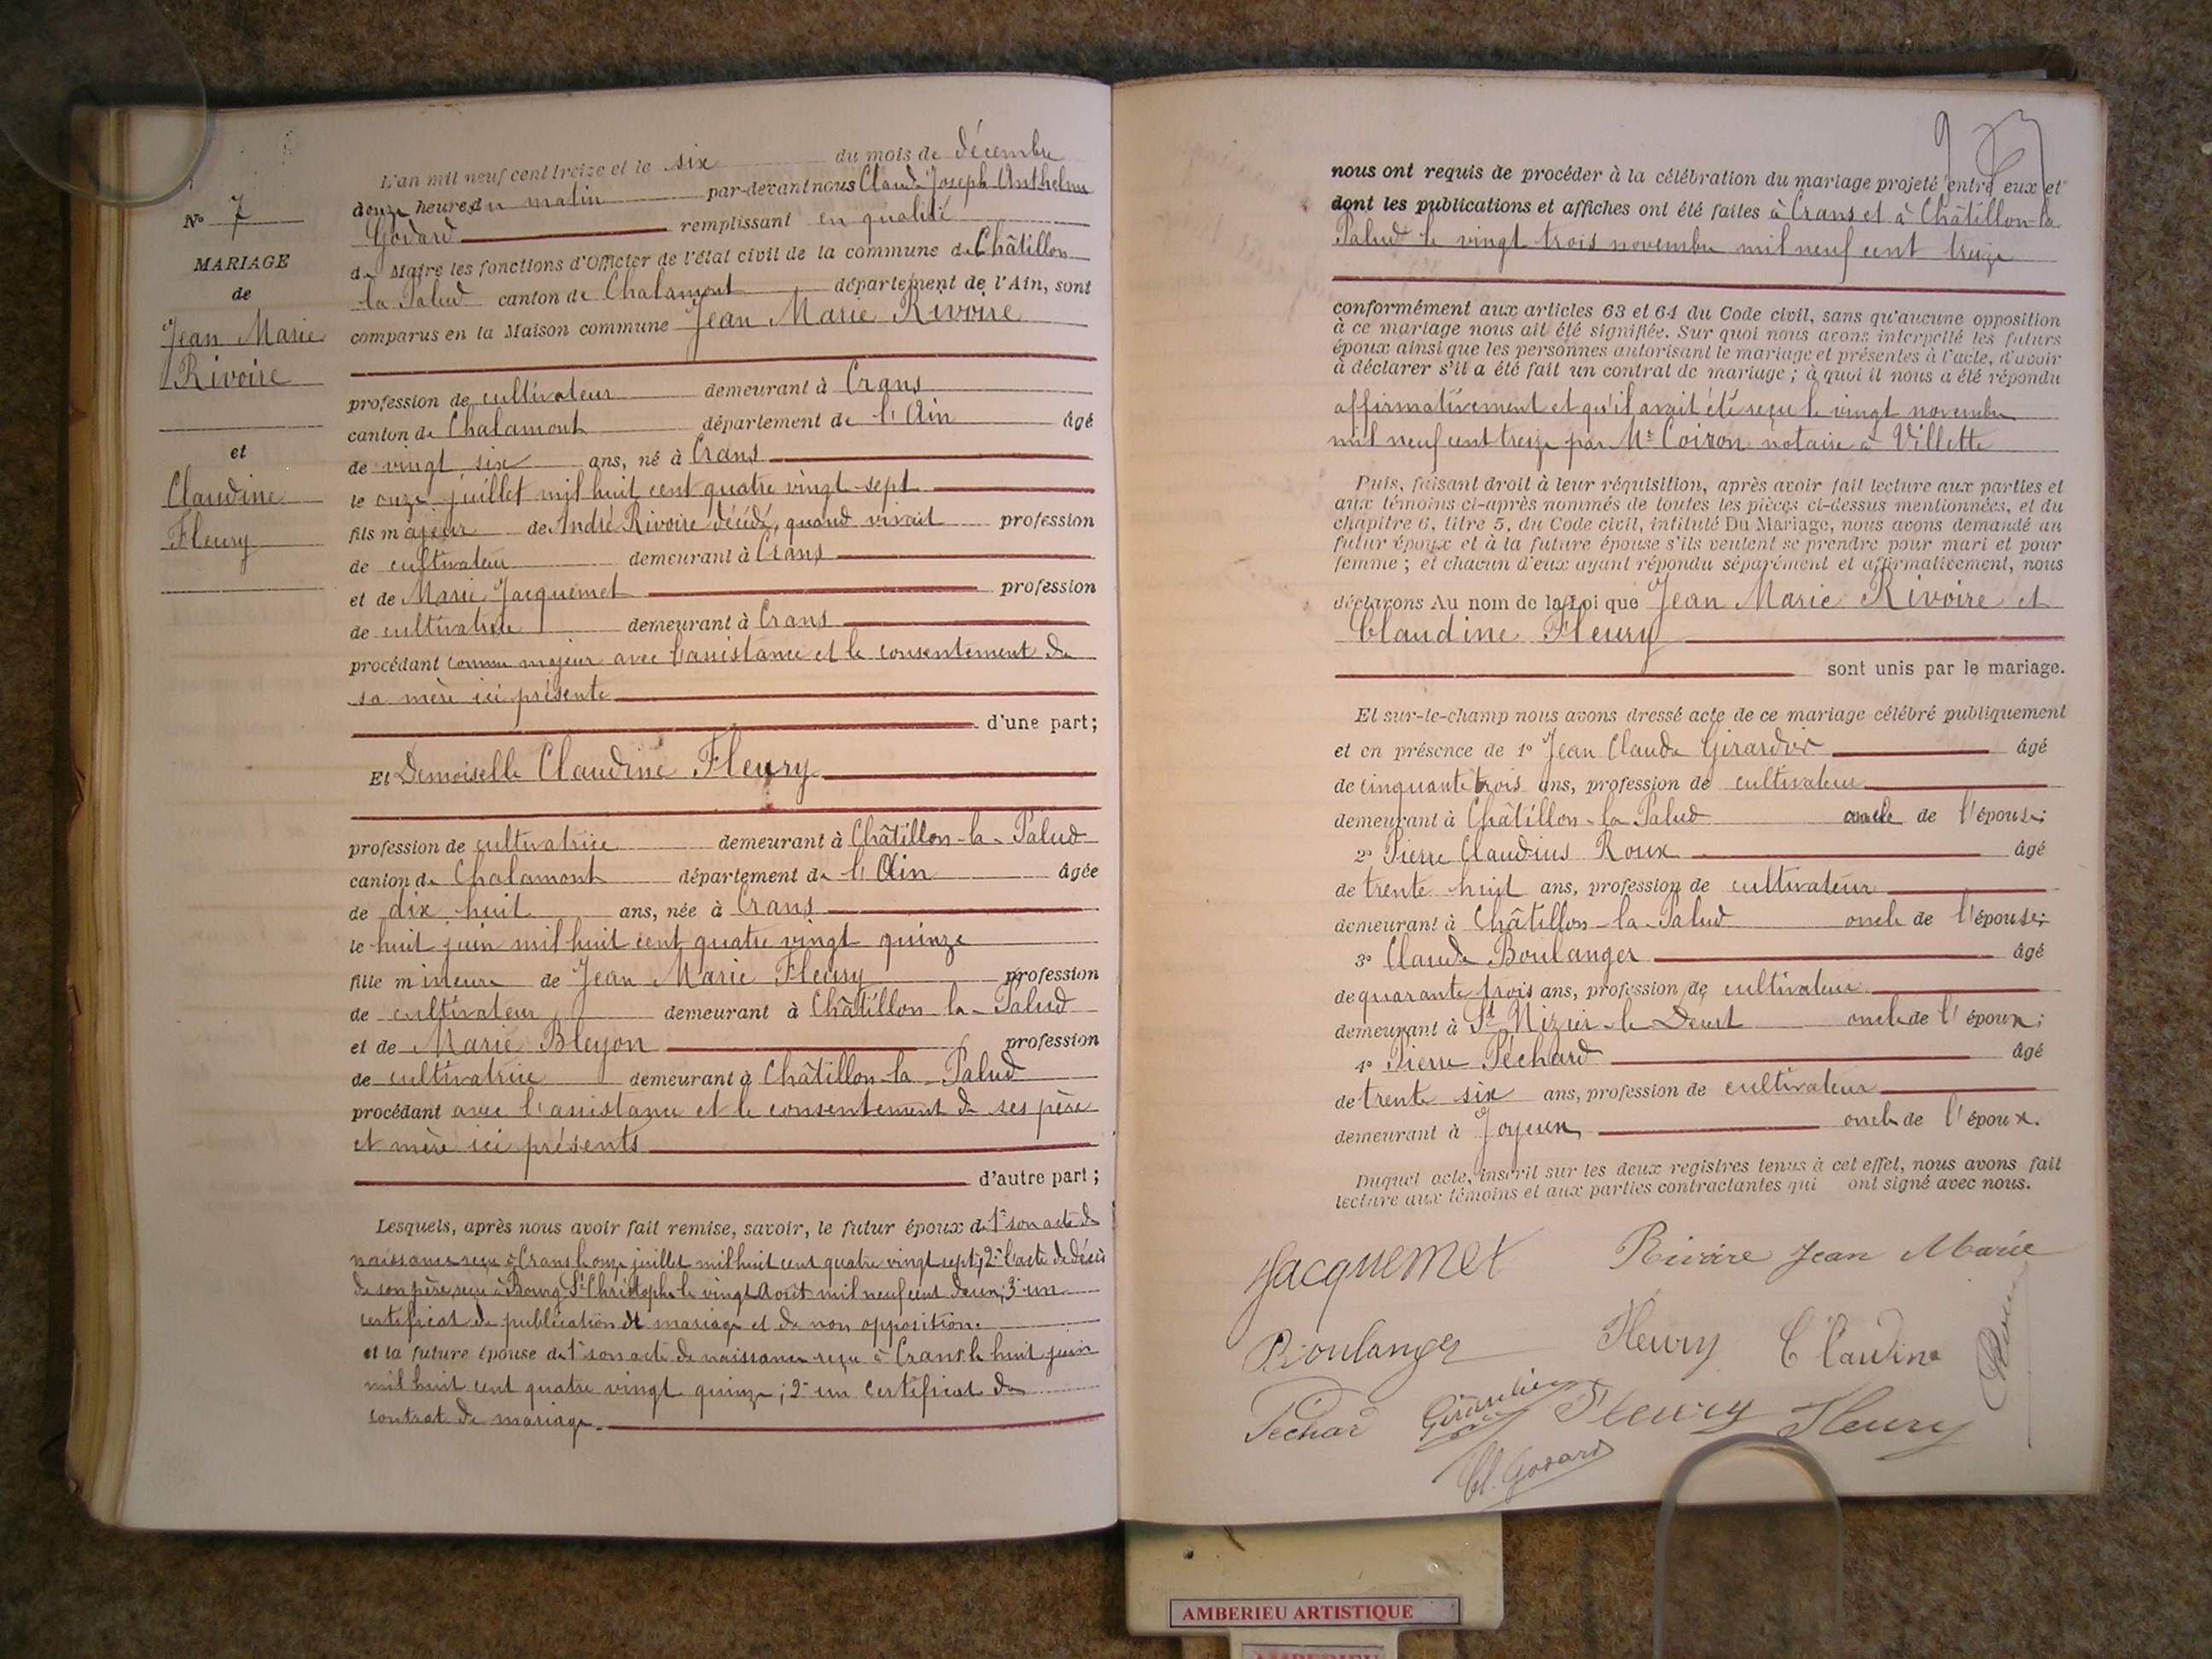 N° 7
MARIAGE
de
Jean Marie
Rivoire
et
Claudine
Fleury
L'an mil neuf cent treize et le six du mois de décembre
heures du matin par-devant nous Claude Joseph Anthelme
Godard remplissant en qualité
de Maire les fonctions d'Officier de l'état civil de la commune de Châtillon
la Palud canton de Chalamont département de l'Ain, sont
comparus en la Maison commune Jean Marie Rivoire
profession de cultivateur demeurant à Crans
canton de Chalamont département de l'Ain âgé
de vingt six ans, né à Crans
le onze juillet mil huit cent quatre vingt sept
fils majeur de André Rivoire décédé, quand vivait profession
de cultivateur demeurant à Crans
et de Marie Jacquemet profession
de cultivatrice demeurant à Crans
procédant comme majeur avec l'assistance et le consentement de
sa mère ici présente
d'une part;
Et Demoiselle Claudine Fleury
profession de cultivatrice demeurant à Châtillon-la-Palud
canton de Chalamont département de l'Ain âgée
de dix huit ans, née à Crans
le huit juin mil huit cent quatre vingt quinze
fille mineure de Jean Marie Fleury profession
de cultivateur demeurant à Châtillon la-Palud
et de Marie Bleyon profession
de cultivatrice demeurant à Châtillon-la-Palud
procédant avec l'assistance et le consentement de ses père
et mère ici présents
d'autre part;
Lesquels, après nous avoir fait remise, savoir, le futur époux de 1° son acte de
naissance reçu à Crans le onze juillet mil huit cent quatre vingt sept; 2° l'acte de décès
de son père, reçu à Bourg St Christophe le vingt août mil neuf cent deux; 3° un
certificat de publication de mariage et de non opposition.
et la future épouse de 1° son acte de naissance reçu à Crans le huit juin
mil huit cent quatre vingt quinze; 2° un certificat de
contrat de mariage.
9
nous ont requis de procéder à la célébration du mariage projeté entre eux et
dont les publications et affiches ont été faites à Crans et à Châtillon-la-
Palud le vingt trois novembre mil neuf cent treize
conformément aux articles 63 et 64 du Code civil, sans qu'aucune opposition
à ce mariage nous ait été signifiée. Sur quoi nous avons interpellé les futurs
époux ainsi que les personnes autorisant le mariage et présentes à l'acte, d'avoir
à déclarer s'il a été fait un contrat de mariage; à quoi il nous a été répondu
affirmativement et qu'il avait été reçu le vingt novembre
mil neuf cent treize par Me Coiron notaire à Villette
Puis, faisant droit à leur réquisition, après avoir fait lecture aux parties et
aux témoins ci-après nommés de toutes les pièces ci-dessus mentionnées, et du
chapitre 6, titre 5, du Code civil, intitulé Du Mariage, nous avons demandé au
futur époux et à la future épouse s'ils veulent se prendre pour mari et pour
femme; et chacun d'eux ayant répondu séparément et affirmativement, nous
déclarons Au nom de la Loi que Jean Marie Rivoire et
Claudine Fleury
sont unis par le mariage.
Et sur-le-champ nous avons dressé acte de ce mariage célébré publiquement
et en présence de 1° Jean Claude âgé
de cinquante trois ans, profession de cultivateur
demeurant à Châtillon-la Palud oncle de l'épouse;
2° Pierre Claudius Roux âgé
de trente huit ans, profession de cultivateur
demeurant à Châtillon-la-Palud oncle de l'épouse;
3° Claude Boulanger âgé
de quarante trois ans, profession de cultivateur
demeurant à St Nizier-le-Désert oncle de l'époux;
4° Pierre Péchard âgé
de trente six ans, profession de cultivateur
demeurant à Joyeux oncle de l'époux.
Duquel acte, inscrit sur les deux registres tenus à cet effet, nous avons fait
lecture aux témoins et aux parties contractantes qui ont signé avec nous.
Jacquemet Rivoire Jean Marie
Boulanger Fleury Claudine Roux
Pechard Fleury Fleury
Cl. Godard
AMBERIEU ARTISTIQUE
AMBERIEU